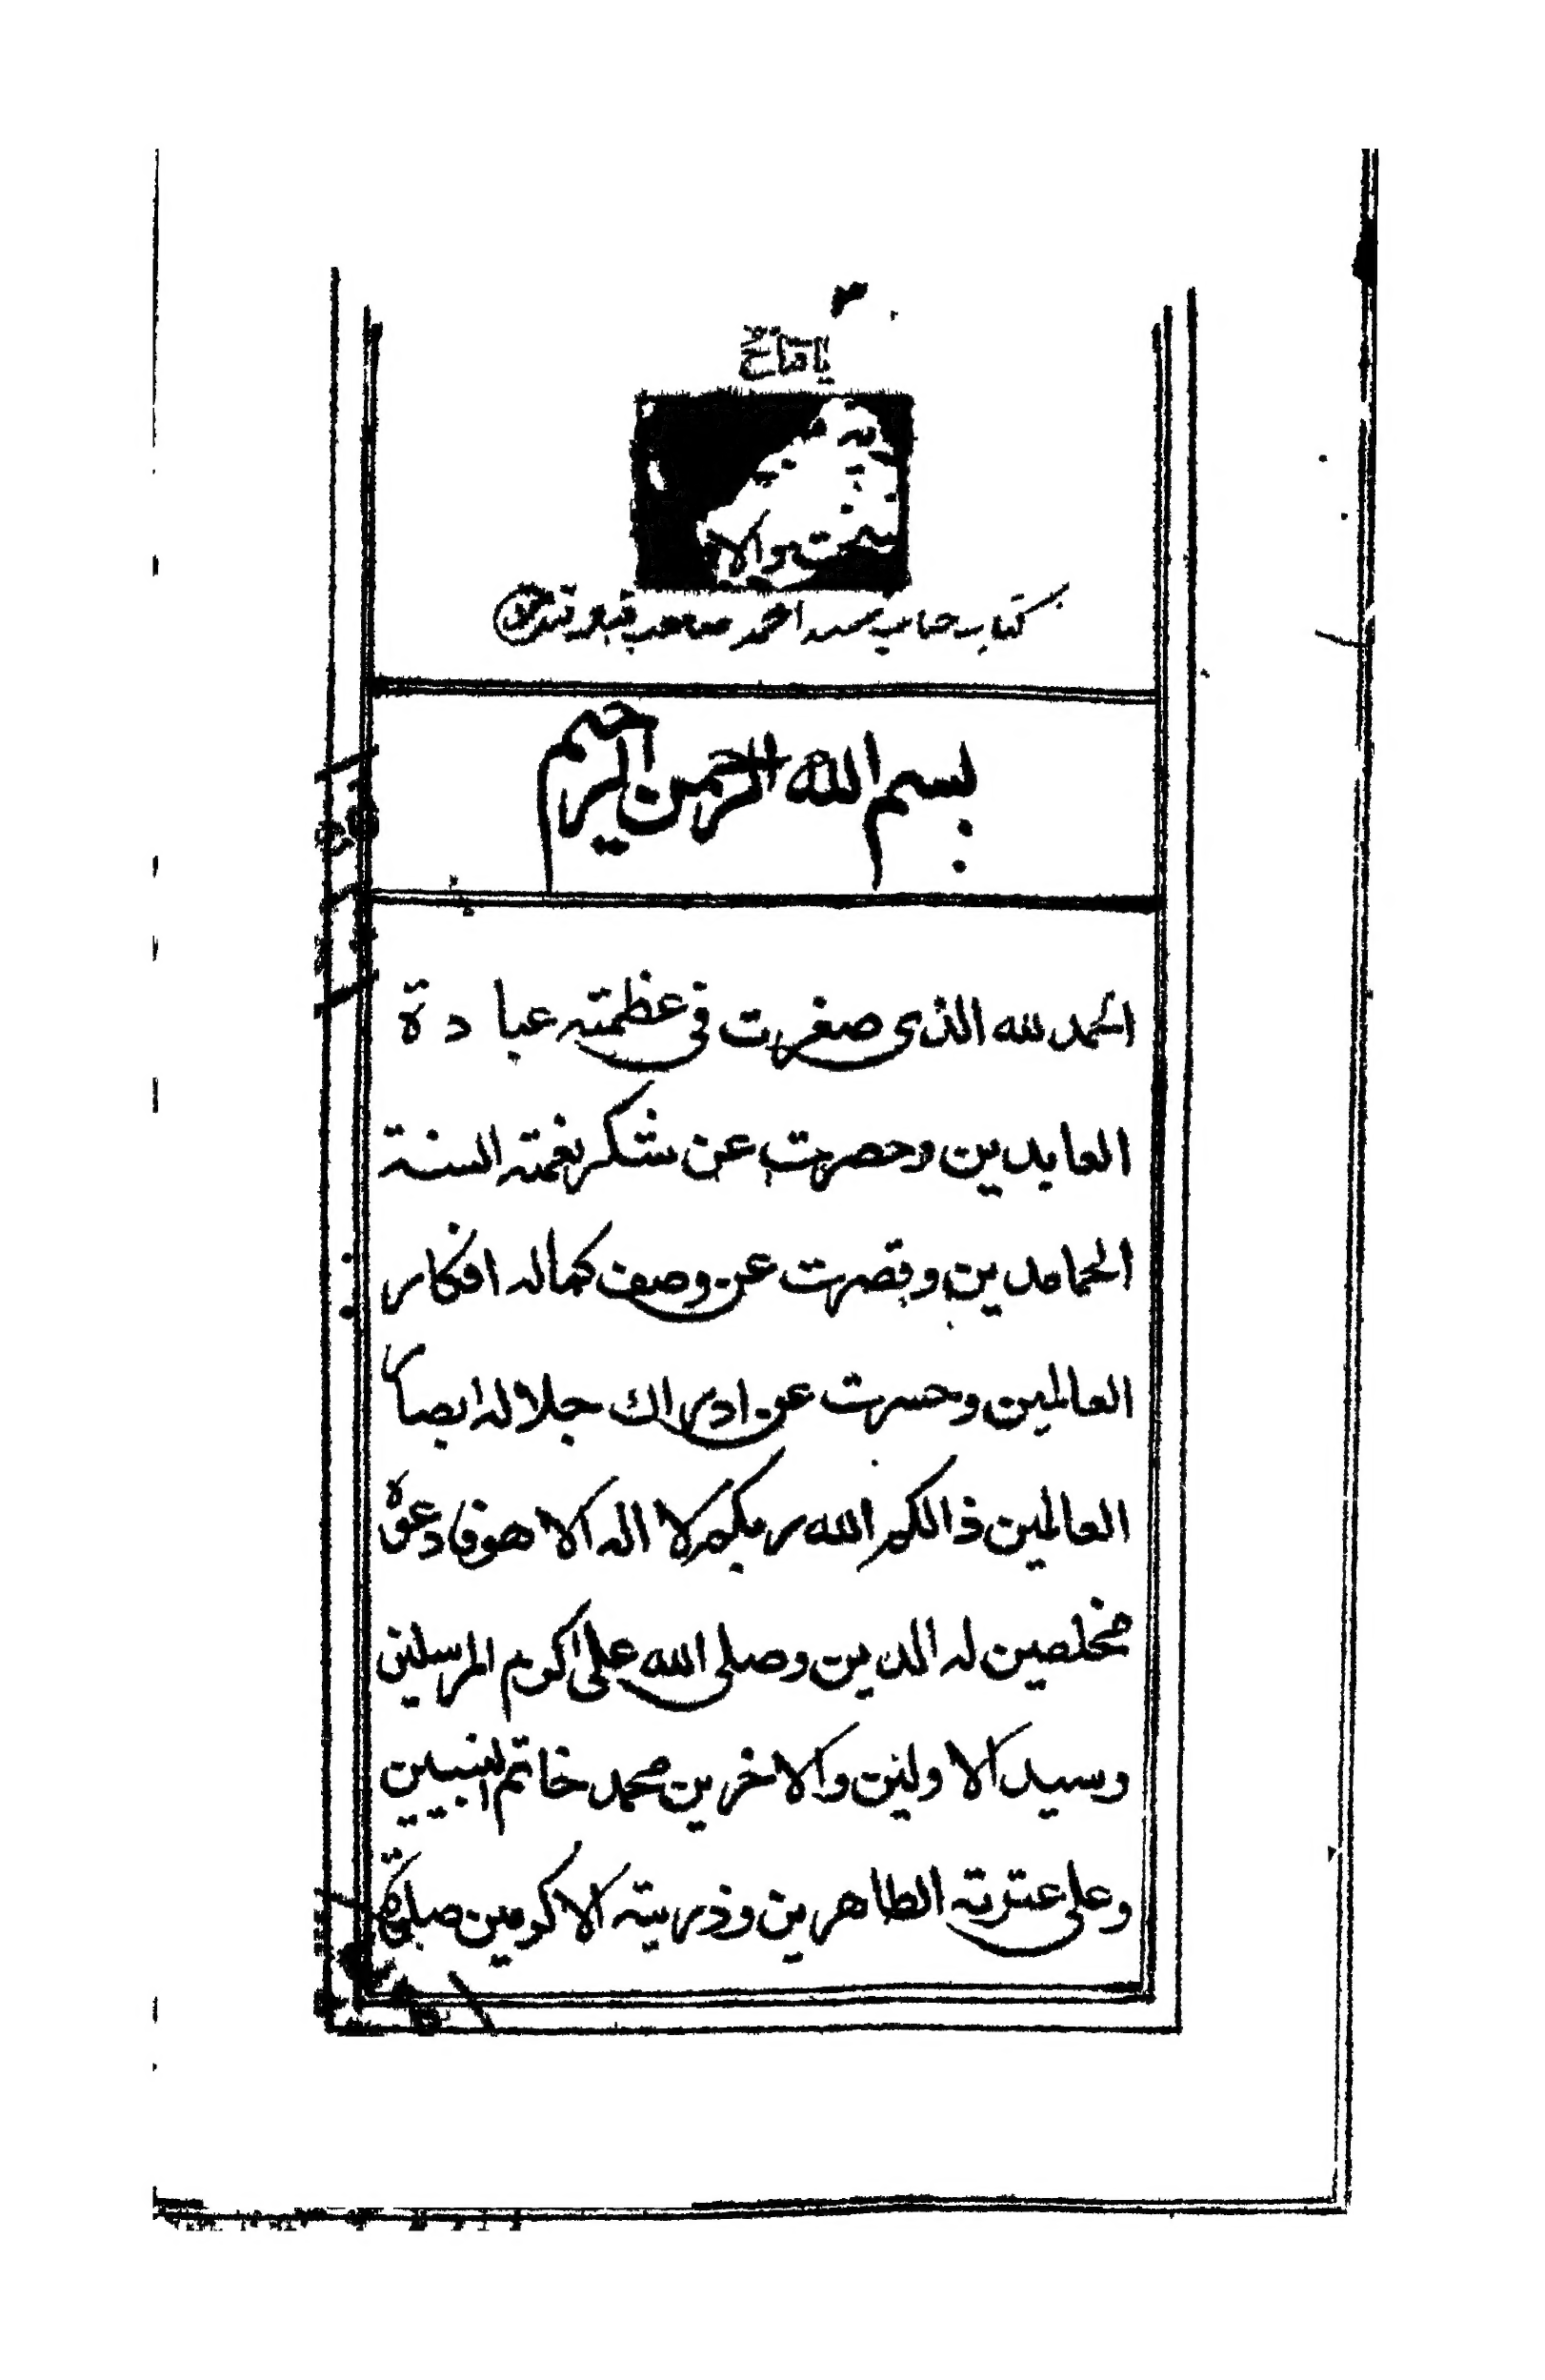 ٣
يا فتاح
كتاب جناب سيد احمد صاحب
بسم الله الرحمن الرحيم
الحمد لله الذى صغرت فى عظمته عبادة
العابدين وحصرت عن شكر نعمته السنة
الحامدين وقصرت عن وصف كماله افكار
العالمين وحسرت عن ادراك جلاله ابصار
العالمين ذالكم الله ربكم لا اله الا هو فادعوه
مخلصين له الدين وصلى الله على اكرم المرسلين
وسيد الاولين والاخرين محمد خاتم النبيين
وعلى عترته الطاهرين وذريته الاكرمين صلوة